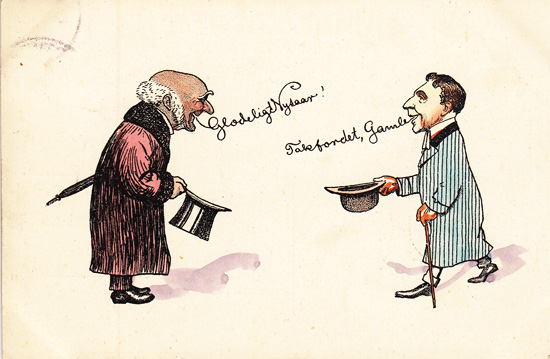 Glædeligt Nytaar!
Tak for det, Gamle